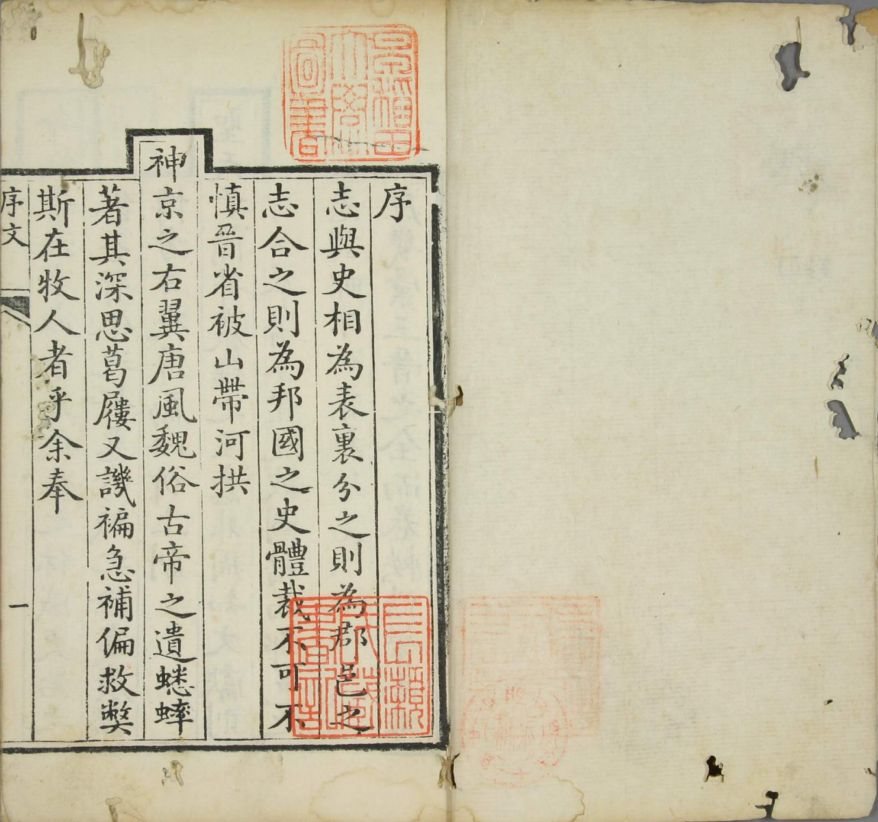 序
志與史相為表裏分之則為郡邑之
志合之則為邦國之史體裁不可不
慎晉省被山帶河拱
神京之右翼唐風魏俗古帝之遺蟋蟀
著其深思葛屨又譏褊急補偏救獘
斯在牧人者乎余奉
序文
一
早稲田大學圖書